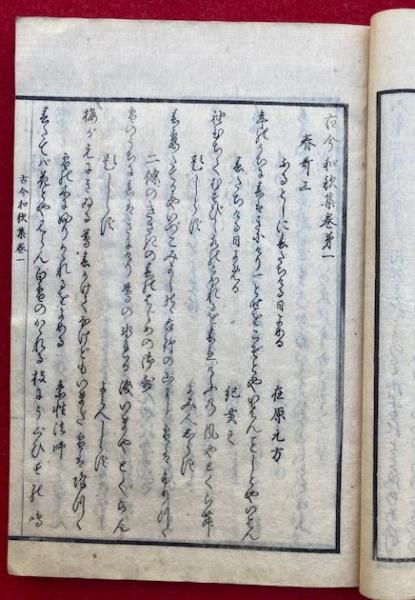 古今和歌集巻第一
春哥上
ふるとしに春たちける日よめる 在原元方
年のうちに春はきにけり一とせをこぞとやいはんことしとやいはん
春たちける日よめる 紀貫之
袖ひぢてむすびし水のこほれるを春立けふの風やとくらむ
題しらず よみ人しらず
春霞たてるやいづこみよしのゝ吉野の山に雪はふりつゝ
二條のきさきの春のはじめの御哥
雪のうちに春はきにけり鶯の氷れる涙いまやとくらん
題しらず よみ人しらず
梅がえにきゐる鶯春かけてなけどもいまだ雪はふりつゝ
雪の木にふりかゝれるをよめる 素性法師
春たてば花とや見らん白雪のかゝれる枝にうぐひすの鳴
古今和歌集巻一